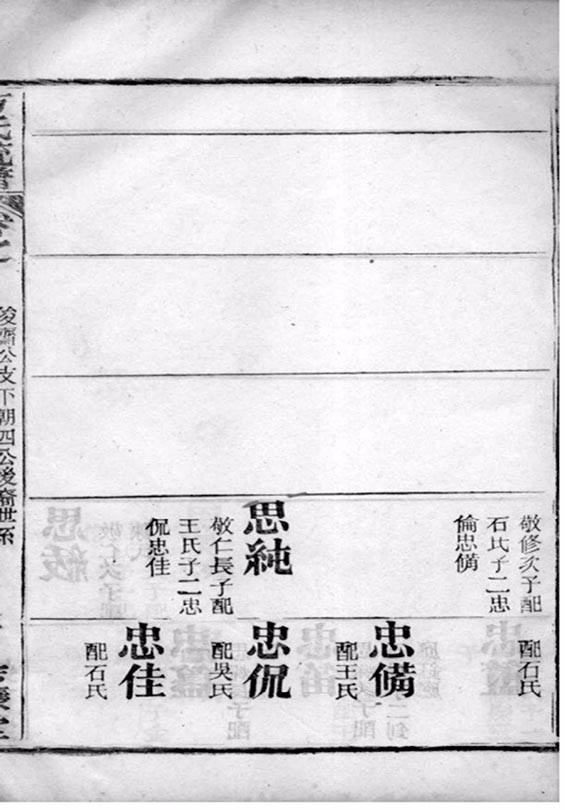 敬修次子配
石氏子二忠
倫忠備
思純
敬仁長子配
王氏子二忠
侃忠佳
配石氏
忠備
配王氏
忠侃
配吳氏
忠佳
配石氏
俊濟公支下朝四公後裔世系